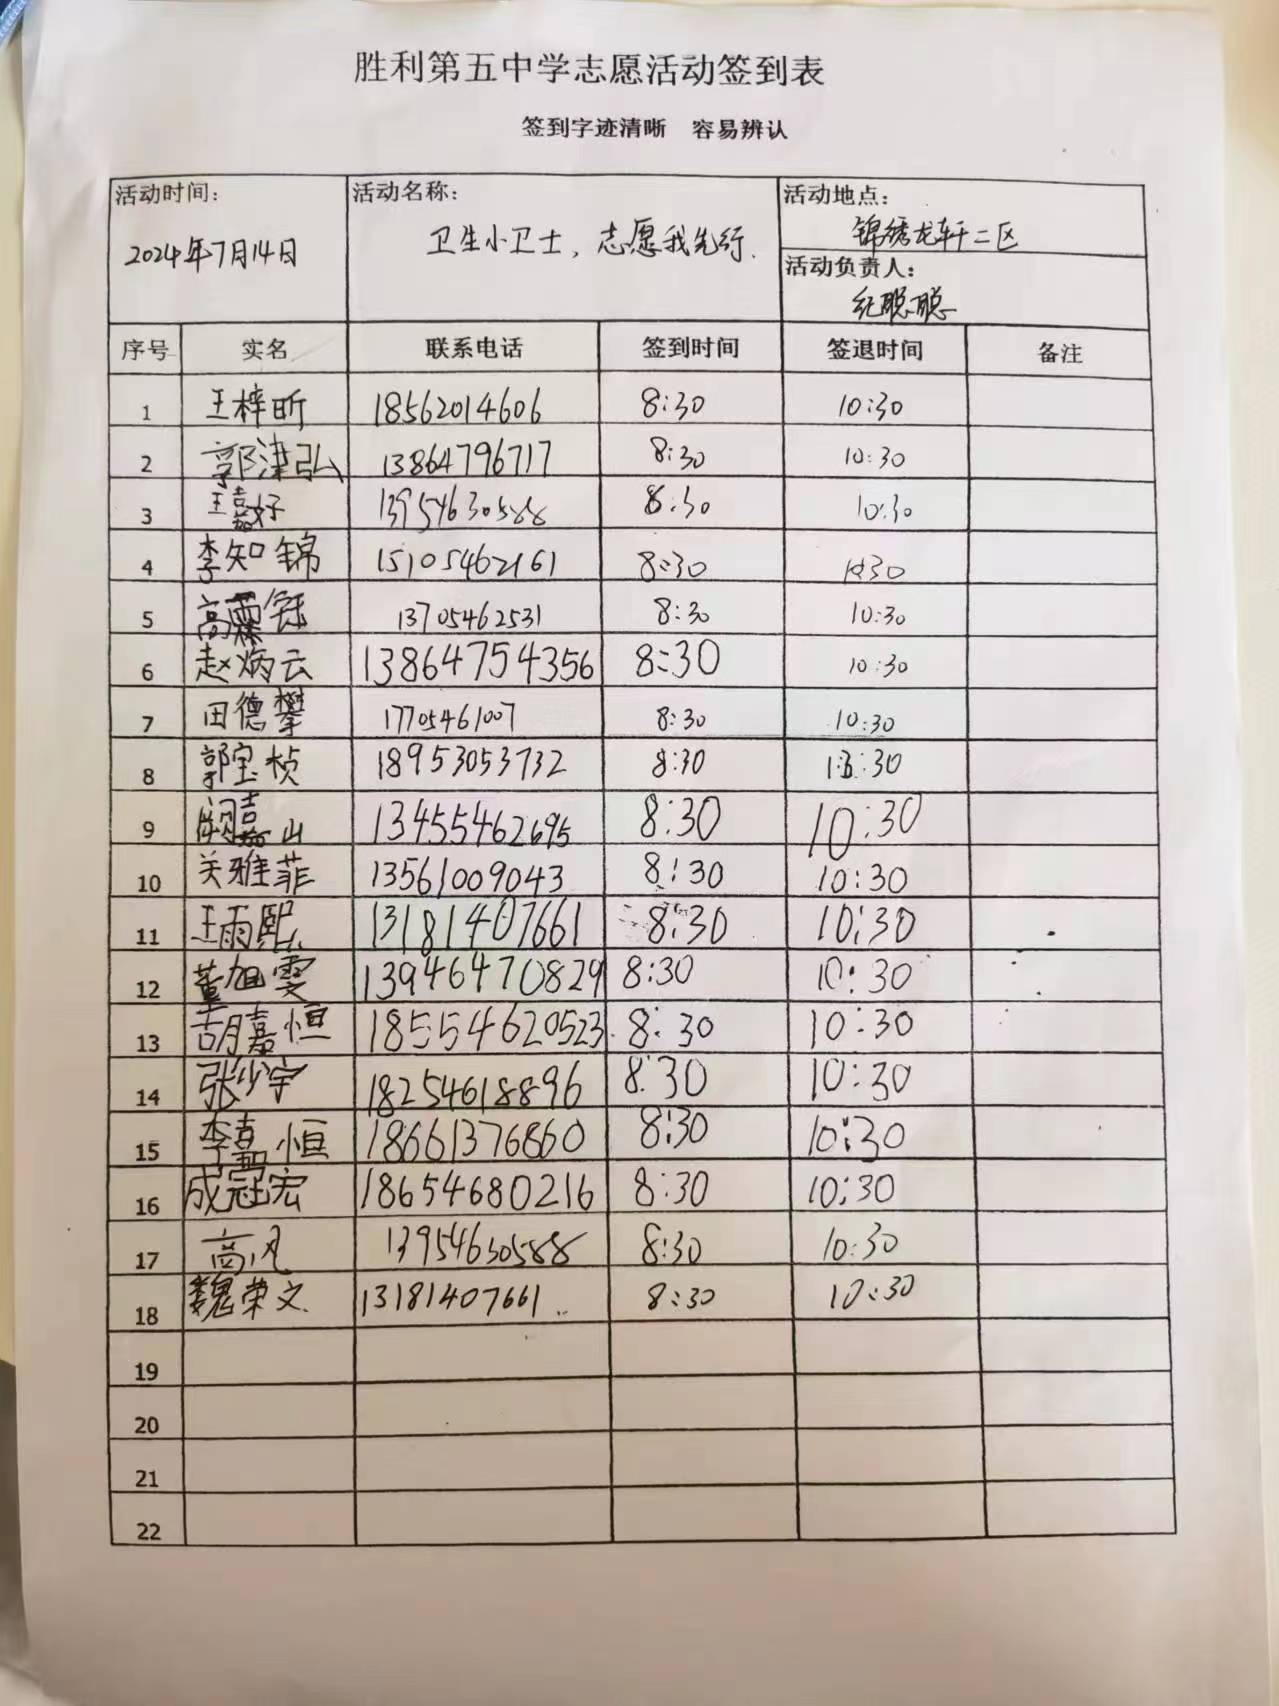 胜利第五中学志愿活动签到表
签到字迹清晰 容易辨认
活动时间: 活动名称: 活动地点:
2024年7月14日 卫生小卫士, 志愿我先行. 锦绣龙轩二区
活动负责人:
纪聪聪
序号 实名 联系电话 签到时间 签退时间 备注
1 王梓昕 18562014606 8:30 10:30
2 郭津弘 13864796717 8:30 10:30
3 王嘉好 13954630588 8:30 10:30
4 李知锦 15105462161 8:30 10:30
5 高霖钰 13705462531 8:30 10:30
6 赵炳云 13864754356 8:30 10:30
7 田德攀 17705461007 8:30 10:30
8 郭宝桢 18953053732 8:30 :30
9 嘉山 13455462695 8:30 10:30
10 关雅菲 13561009043 8:30 10:30
11 王雨熙 13181407661 8:30 10:30
12 董旭雯 13946470829 8:30 10:30
13 胡嘉恒 18554620523 8:30 10:30
14 张少宇 18254618896 8:30 10:30
15 李嘉恒 18661376860 8:30 10:30
16 成冠宏 18654680216 8:30 10:30
17 高风 13954630588 8:30 10:30
18 魏荣文 13181407661 8:30 10:30
19
20
21
22